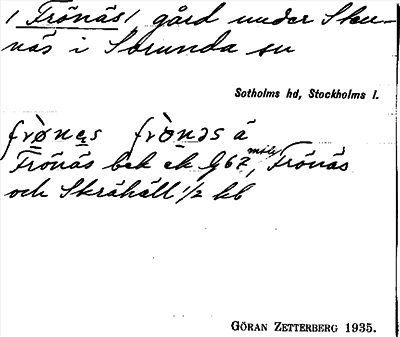 / Frönäs /, gård under Sku-
näs i Sorunda sn
Sotholms hd, Stockholms l.
frø̀nɛs frø̀nəs ä
Frönäs bek ek G62, Frönäs
och Skråhäll 1/2 kb
GÖRAN ZETTERBERG 1935.